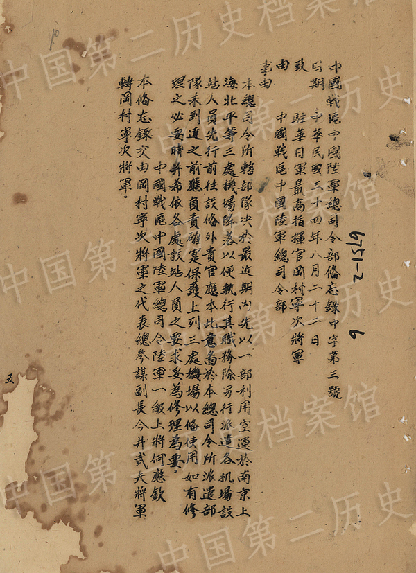 中國戰區中國陸軍總司令部備忘錄中字第三號
日期 中華民國三十四年八月二十二日
致 駐華日軍最高指揮官岡村寧次將軍
由 中國戰區中國陸軍總司令部
事由
本總司令所轄部隊決於最近期內先以一部利用空運於南京上
海北平等三處機場降落以便執行其職務除另行派遣各機場設
站人員先行前往設備外貴官應本此意旨於本總司令所派遣部
隊未到達之前應負責確實保護上列三處機場以備使用如有修
理之必要時並希依各處設站人員之要求妥為修理為要
中國戰區中國陸軍總司令陸軍一級上將何應欽
本備忘錄交由岡村寧次將軍之代表總參謀副長今井武夫將軍
轉岡村寧次將軍
6751-2
6
中国第二历史档案馆